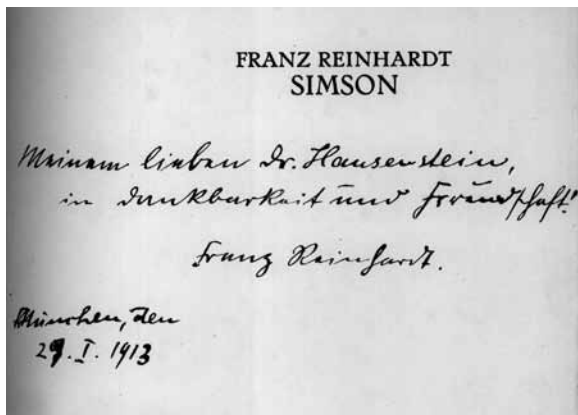 FRANZ REINHARDT
SIMSON
Meinem lieben Dr. Hausenstein,
in Dankbarkeit und Freundschaft!
Franz Reinhardt.
München, den
29. I. 1913